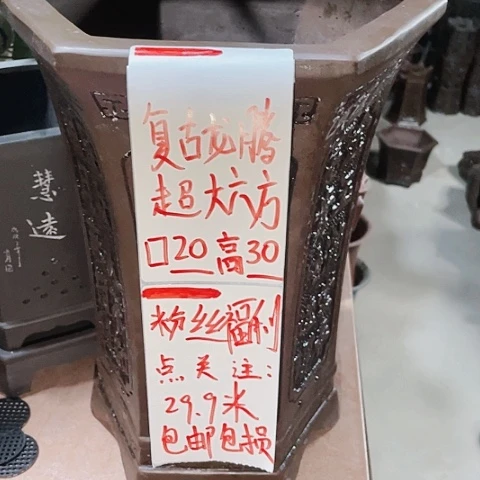 复古龙腾
超大六方
口20高30
粉丝福利
点关注:
29.9米
包邮包损
慧远